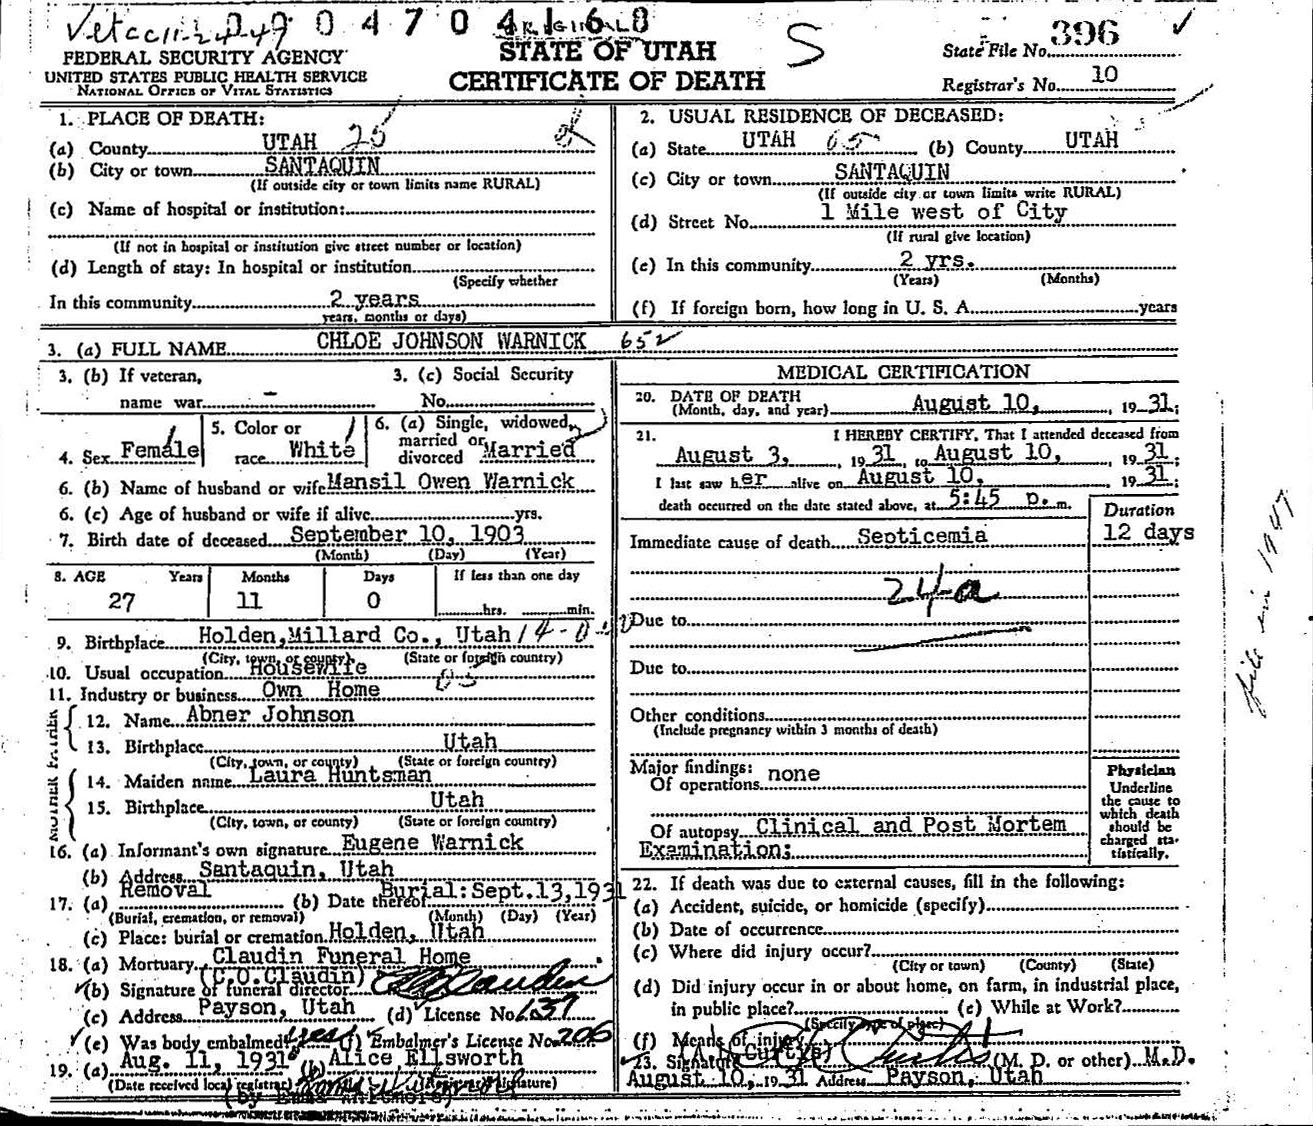 0 4 7 0 4 1 6 8
FEDERAL SECURITY AGENCY
UNITED STATES PUBLIC HEALTH SERVICE
NATIONAL OFFICE OF VITAL STATISTICS
ORIGINAL
STATE OF UTAH
CERTIFICATE OF DEATH
S
State File No. 396
Registrar's No. 10
1. PLACE OF DEATH:
(a) County UTAH 25
(b) City or town SANTAQUIN
(If outside city or town limits name RURAL)
(c) Name of hospital or institution:
(If not in hospital or institution give street number or location)
(d) Length of stay: In hospital or institution
(Specify whether
In this community 2 years
years, months or days)
2. USUAL RESIDENCE OF DECEASED:
(a) State UTAH 65 (b) County UTAH
(c) City or town SANTAQUIN
(If outside city or town limits write RURAL)
(d) Street No. 1 Mile west of City
(If rural give location)
(e) In this community 2 yrs.
(Years) (Months)
(f) If foreign born, how long in U. S. A. years
3. (a) FULL NAME CHLOE JOHNSON WARNICK 652
3. (b) If veteran, 3. (c) Social Security
name war - No.
4. Sex Female 5. Color or race White 6. (a) Single, widowed, married or divorced Married
6. (b) Name of husband or wife Mansil Owen Warnick
6. (c) Age of husband or wife if alive yrs.
7. Birth date of deceased September 10, 1903
(Month) (Day) (Year)
8. AGE Years Months Days If less than one day
27 11 0 hrs. min.
9. Birthplace Holden, Millard Co., Utah
(City, town, or county) (State or foreign country)
10. Usual occupation Housewife
11. Industry or business Own Home
FATHER
12. Name Abner Johnson
13. Birthplace Utah
(City, town, or county) (State or foreign country)
MOTHER
14. Maiden name Laura Huntsman
15. Birthplace Utah
(City, town, or county) (State or foreign country)
16. (a) Informant's own signature Eugene Warnick
(b) Address Santaquin, Utah
17. (a) Removal (b) Date thereof Burial: Sept. 13, 1931
(Burial, cremation, or removal) (Month) (Day) (Year)
(c) Place: burial or cremation Holden, Utah
18. (a) Mortuary Claudin Funeral Home
(C.O. Claudin)
(b) Signature of funeral director Claudin
(c) Address Payson, Utah (d) License No. 137
(e) Was body embalmed yes (f) Embalmer's License No. 206
19. (a) Aug. 11, 1931 (b) Alice Ellsworth
(Date received local registrar) (Registrar's signature)
MEDICAL CERTIFICATION
20. DATE OF DEATH
(Month, day, and year) August 10, 1931;
21. I HEREBY CERTIFY, That I attended deceased from
August 3, 1931, to August 10, 1931;
I last saw her alive on August 10, 1931;
death occurred on the date stated above, at 5:45 p. m.
Duration
Immediate cause of death Septicemia 12 days
24a
Due to
Due to
Other conditions
(Include pregnancy within 3 months of death)
Major findings:
Of operations none
Of autopsy Clinical and Post Mortem
Examination;
Physician
Underline
the cause to
which death
should be
charged sta-
tistically.
22. If death was due to external causes, fill in the following:
(a) Accident, suicide, or homicide (specify)
(b) Date of occurrence
(c) Where did injury occur?
(City or town) (County) (State)
(d) Did injury occur in or about home, on farm, in industrial place,
in public place? (e) While at Work?
(Specify type of place)
(f) Means of injury
23. Signature Curtis (M. D. or other) M.D.
August 10, 1931 Address Payson, Utah
file in 1947